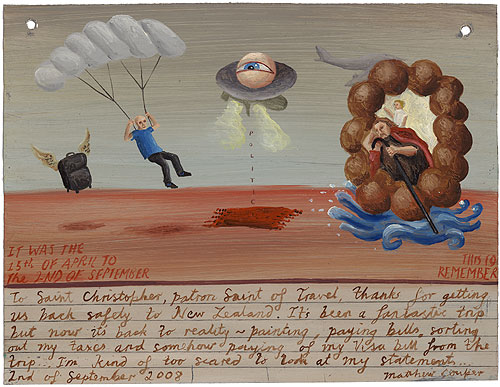 POLITIC
IT WAS THE
13th OF APRIL TO
the 2ND OF SEPTEMBER
THIS I'D
REMEMBER
To Saint Christopher, patron Saint of Travel, thanks for getting
us back safely to New Zealand. It's been a fantastic trip
but now its back to reality ~ painting, paying bills, sorting
out my taxes and somehow paying of my Visa bill from the
trip... I'm kind of too scared to look at my statement...
2nd of September 2008
Matthew Couper